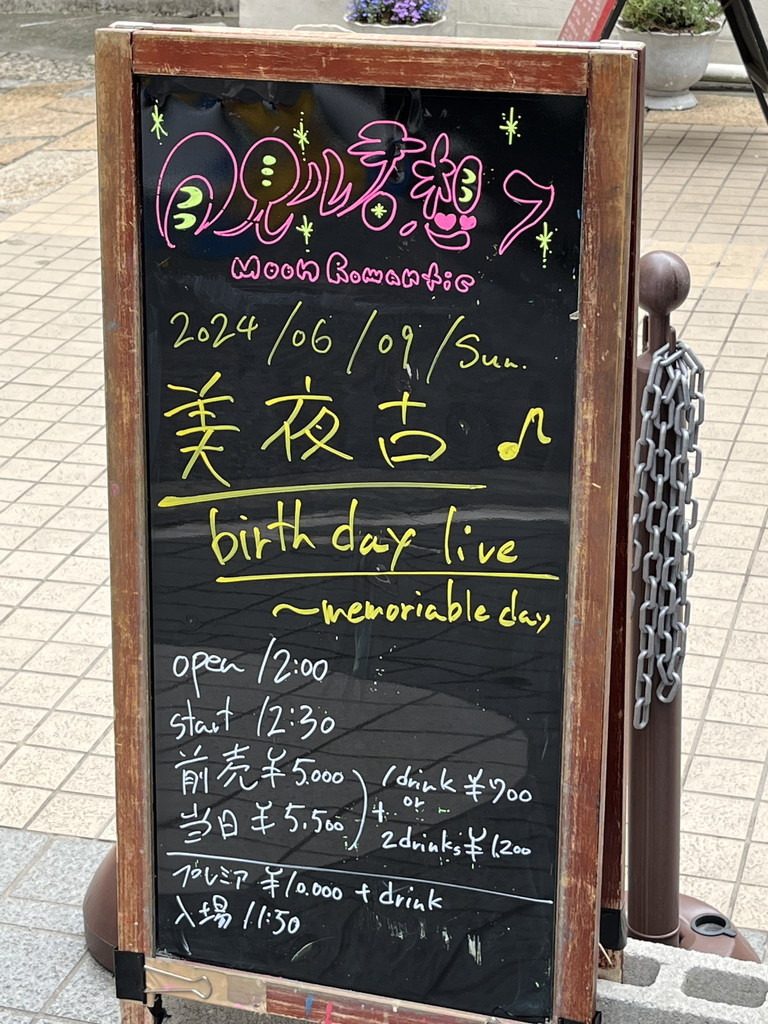 月見ル君想フ
Moon Romantic
2024/06/09/Sun.
美夜古♪
birthday live
～memoriable day
open 12:00
start 12:30
前売¥5.000
当日¥5.500
+
1drink ¥700
or
2drinks¥1.200
プレミア ¥10.000 + drink
入場 11:50